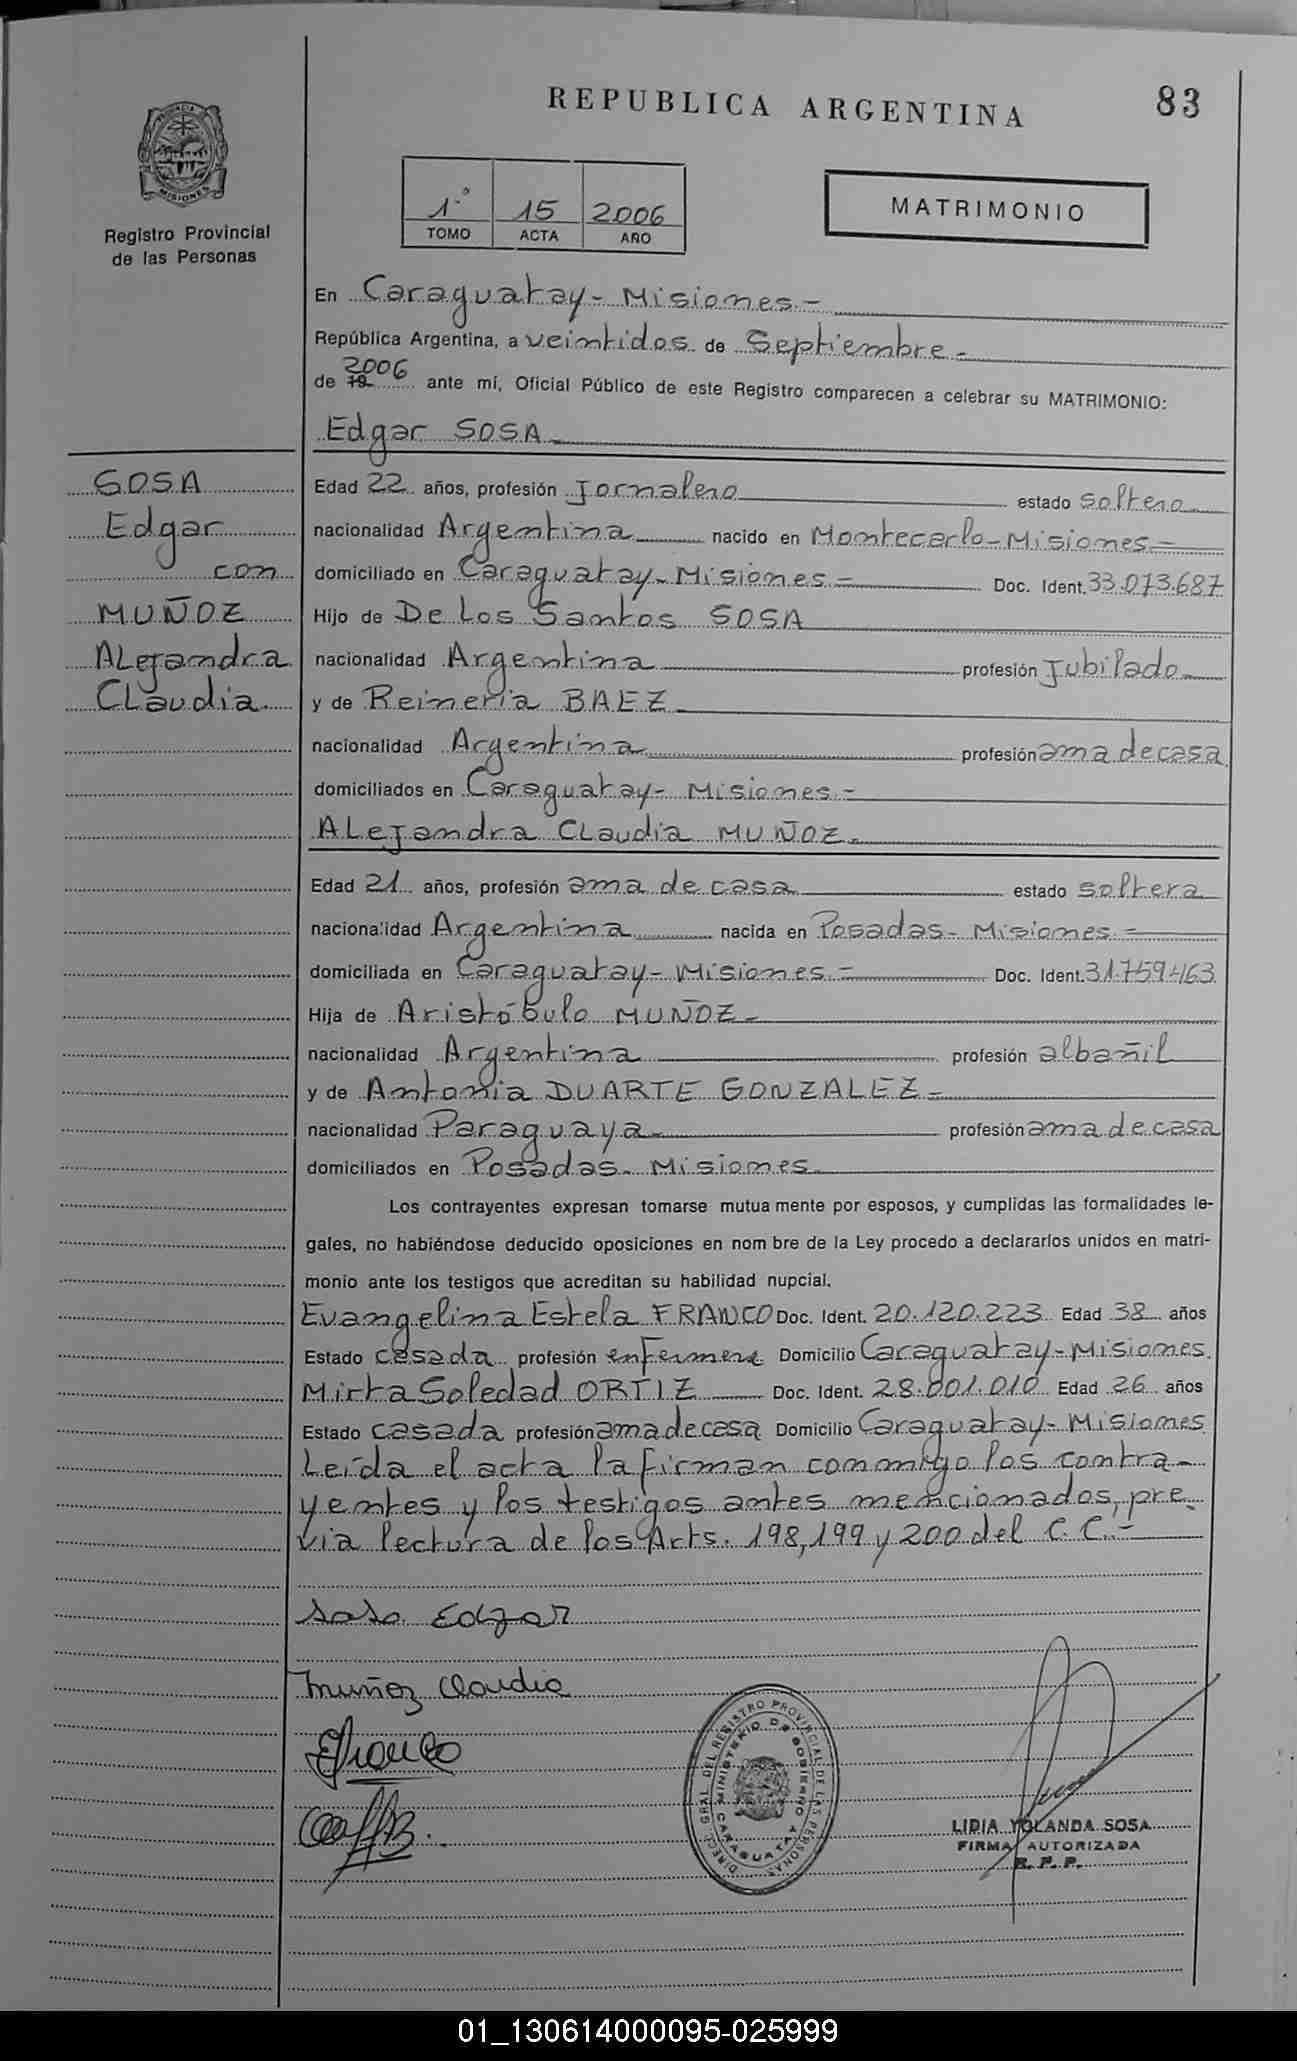 REPUBLICA ARGENTINA
83
PROVINCIA
MISIONES
Registro Provincial
de las Personas
1º 15 2006
TOMO ACTA AÑO
MATRIMONIO
En Caraguatay - Misiones.-
República Argentina, a veintidos de Septiembre.-
de 19 2006 ante mí, Oficial Público de este Registro comparecen a celebrar su MATRIMONIO:
Edgar SOSA.-
SOSA
Edgar
con
MUÑOZ
Alejandra
Claudia.
Edad 22 años, profesión Jornalero estado soltero
nacionalidad Argentina nacido en Montecarlo-Misiones.-
domiciliado en Caraguatay-Misiones.- Doc. Ident. 33.073.687
Hijo de De Los Santos SOSA
nacionalidad Argentina profesión Jubilado
y de Reineria BAEZ.
nacionalidad Argentina profesión ama de casa
domiciliados en Caraguatay- Misiones.-
Alejandra Claudia MUÑOZ.
Edad 21 años, profesión ama de casa estado soltera
nacionalidad Argentina nacida en Posadas- Misiones.-
domiciliada en Caraguatay-Misiones.- Doc. Ident. 31.759.463
Hija de Aristóbulo MUÑOZ-
nacionalidad Argentina profesión albañil
y de Antonia DUARTE GONZALEZ-
nacionalidad Paraguaya profesión ama de casa
domiciliados en Posadas- Misiones
Los contrayentes expresan tomarse mutua mente por esposos, y cumplidas las formalidades le-
gales, no habiéndose deducido oposiciones en nom bre de la Ley procedo a declararlos unidos en matri-
monio ante los testigos que acreditan su habilidad nupcial.
Evangelina Estela FRANCO Doc. Ident. 20.120.223 Edad 38 años
Estado casada profesión enfermera Domicilio Caraguatay-Misiones.
Mirta Soledad ORTIZ Doc. Ident. 28.001.010 Edad 26 años
Estado casada profesión ama de casa Domicilio Caraguatay-Misiones
Leída el acta la firman conmigo los contra-
yentes y los testigos antes mencionados, pre-
via lectura de los Arts. 198, 199 y 200 del C.C.-
Sosa Edgar
Muñoz Claudia
EFranco
DIRECC. GRAL. DEL REGISTRO PROVINCIAL DE LAS PERSONAS
MINISTERIO DE GOBIERNO
CARAGUATAY
LIDIA YOLANDA SOSA
FIRMA AUTORIZADA
R. P. P.
01_130614000095-025999